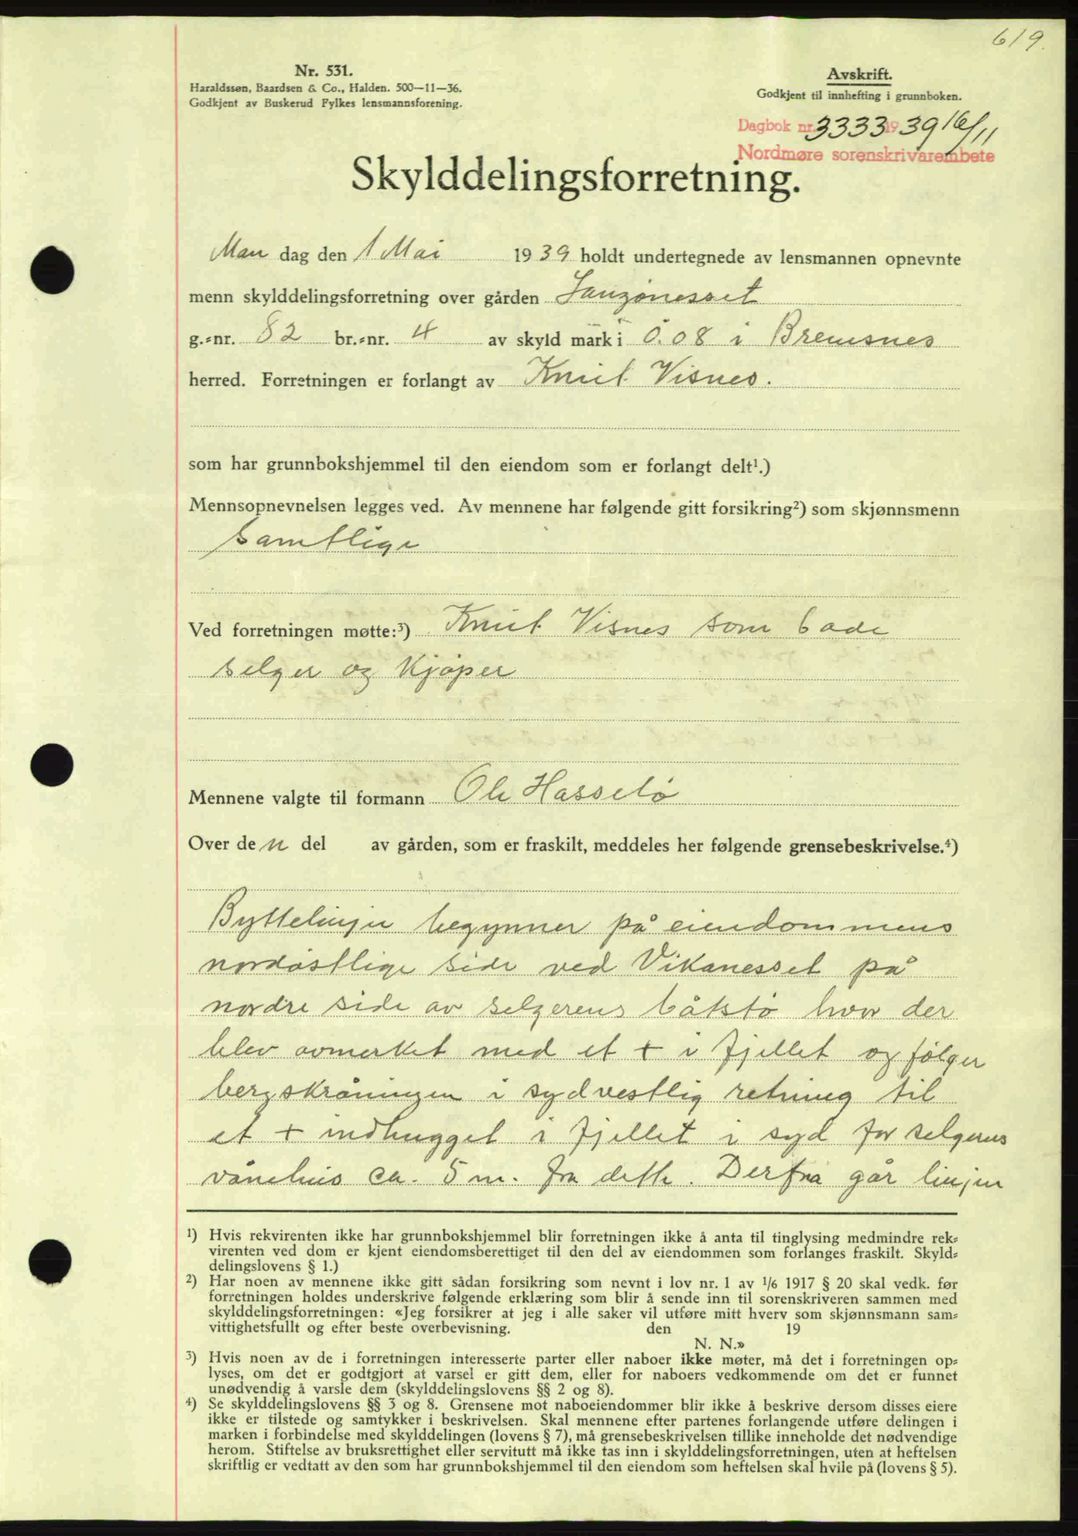 619.
Nr. 531.
Haraldssøn, Baardsen & Co., Halden. 500—11—36.
Godkjent av Buskerud Fylkes lensmannsforening.
Avskrift.
Godkjent til innhefting i grunnboken.
Dagbok nr. 3333 1939 16/11
Nordmøre sorenskrivarembete
Skylddelingsforretning.
Man dag den 1 Mai 1939 holdt undertegnede av lensmannen opnevnte
menn skylddelingsforretning over gården
g.=nr. 82 br.=nr. 4 av skyld mark i 0.08 i Bremsnes
herred. Forretningen er forlangt av Knut Visnes.
som har grunnbokshjemmel til den eiendom som er forlangt delt¹.)
Mennsopnevnelsen legges ved. Av mennene har følgende gitt forsikring²) som skjønnsmenn
Samtlige
Ved forretningen møtte:³) Knut Visnes som både
selger og Kjøper
Mennene valgte til formann Ole Hasselø
Over den del av gården, som er fraskilt, meddeles her følgende grensebeskrivelse.⁴)
Byttelinjen begynner på eiendommens
nordøstlige side ved Vikanesset på
nordre side av selgerens båtstø hvor der
blev avmerket med et + i fjellet og følger
bergskråningen i sydvestlig retning til
et + indhugget i fjellet i syd for selgerens
vånehus ca. 5 m. fra dette. Derfra går linjen
¹) Hvis rekvirenten ikke har grunnbokshjemmel blir forretningen ikke å anta til tinglysing medmindre rek=
virenten ved dom er kjent eiendomsberettiget til den del av eiendommen som forlanges fraskilt. Skyld=
delingslovens § 1.)
²) Har noen av mennene ikke gitt sådan forsikring som nevnt i lov nr. 1 av 1/6 1917 § 20 skal vedk. før
forretningen holdes underskrive følgende erklæring som blir å sende inn til sorenskriveren sammen med
skylddelingsforretningen: «Jeg forsikrer at jeg i alle saker vil utføre mitt hverv som skjønnsmann sam=
vittighetsfullt og efter beste overbevisning. den 19
N. N.»
³) Hvis noen av de i forretningen interesserte parter eller naboer ikke møter, må det i forretningen op=
lyses, om det er godtgjort at varsel er gitt dem, eller for naboers vedkommende om det er funnet
unødvendig å varsle dem (skylddelingslovens §§ 2 og 8).
⁴) Se skylddelingslovens §§ 3 og 8. Grensene mot naboeiendommer blir ikke å beskrive dersom disses eiere
ikke er tilstede og samtykker i beskrivelsen. Skal mennene efter partenes forlangende utføre delingen i
marken i forbindelse med skylddelingen (lovens § 7), må grensebeskrivelsen tillike inneholde det nødvendige
herom. Stiftelse av bruksrettighet eller servitutt må ikke tas inn i skylddelingsforretningen, uten at heftelsen
skriftlig er vedtatt av den som har grunnbokshjemmel til den eiendom som heftelsen skal hvile på (lovens § 5).